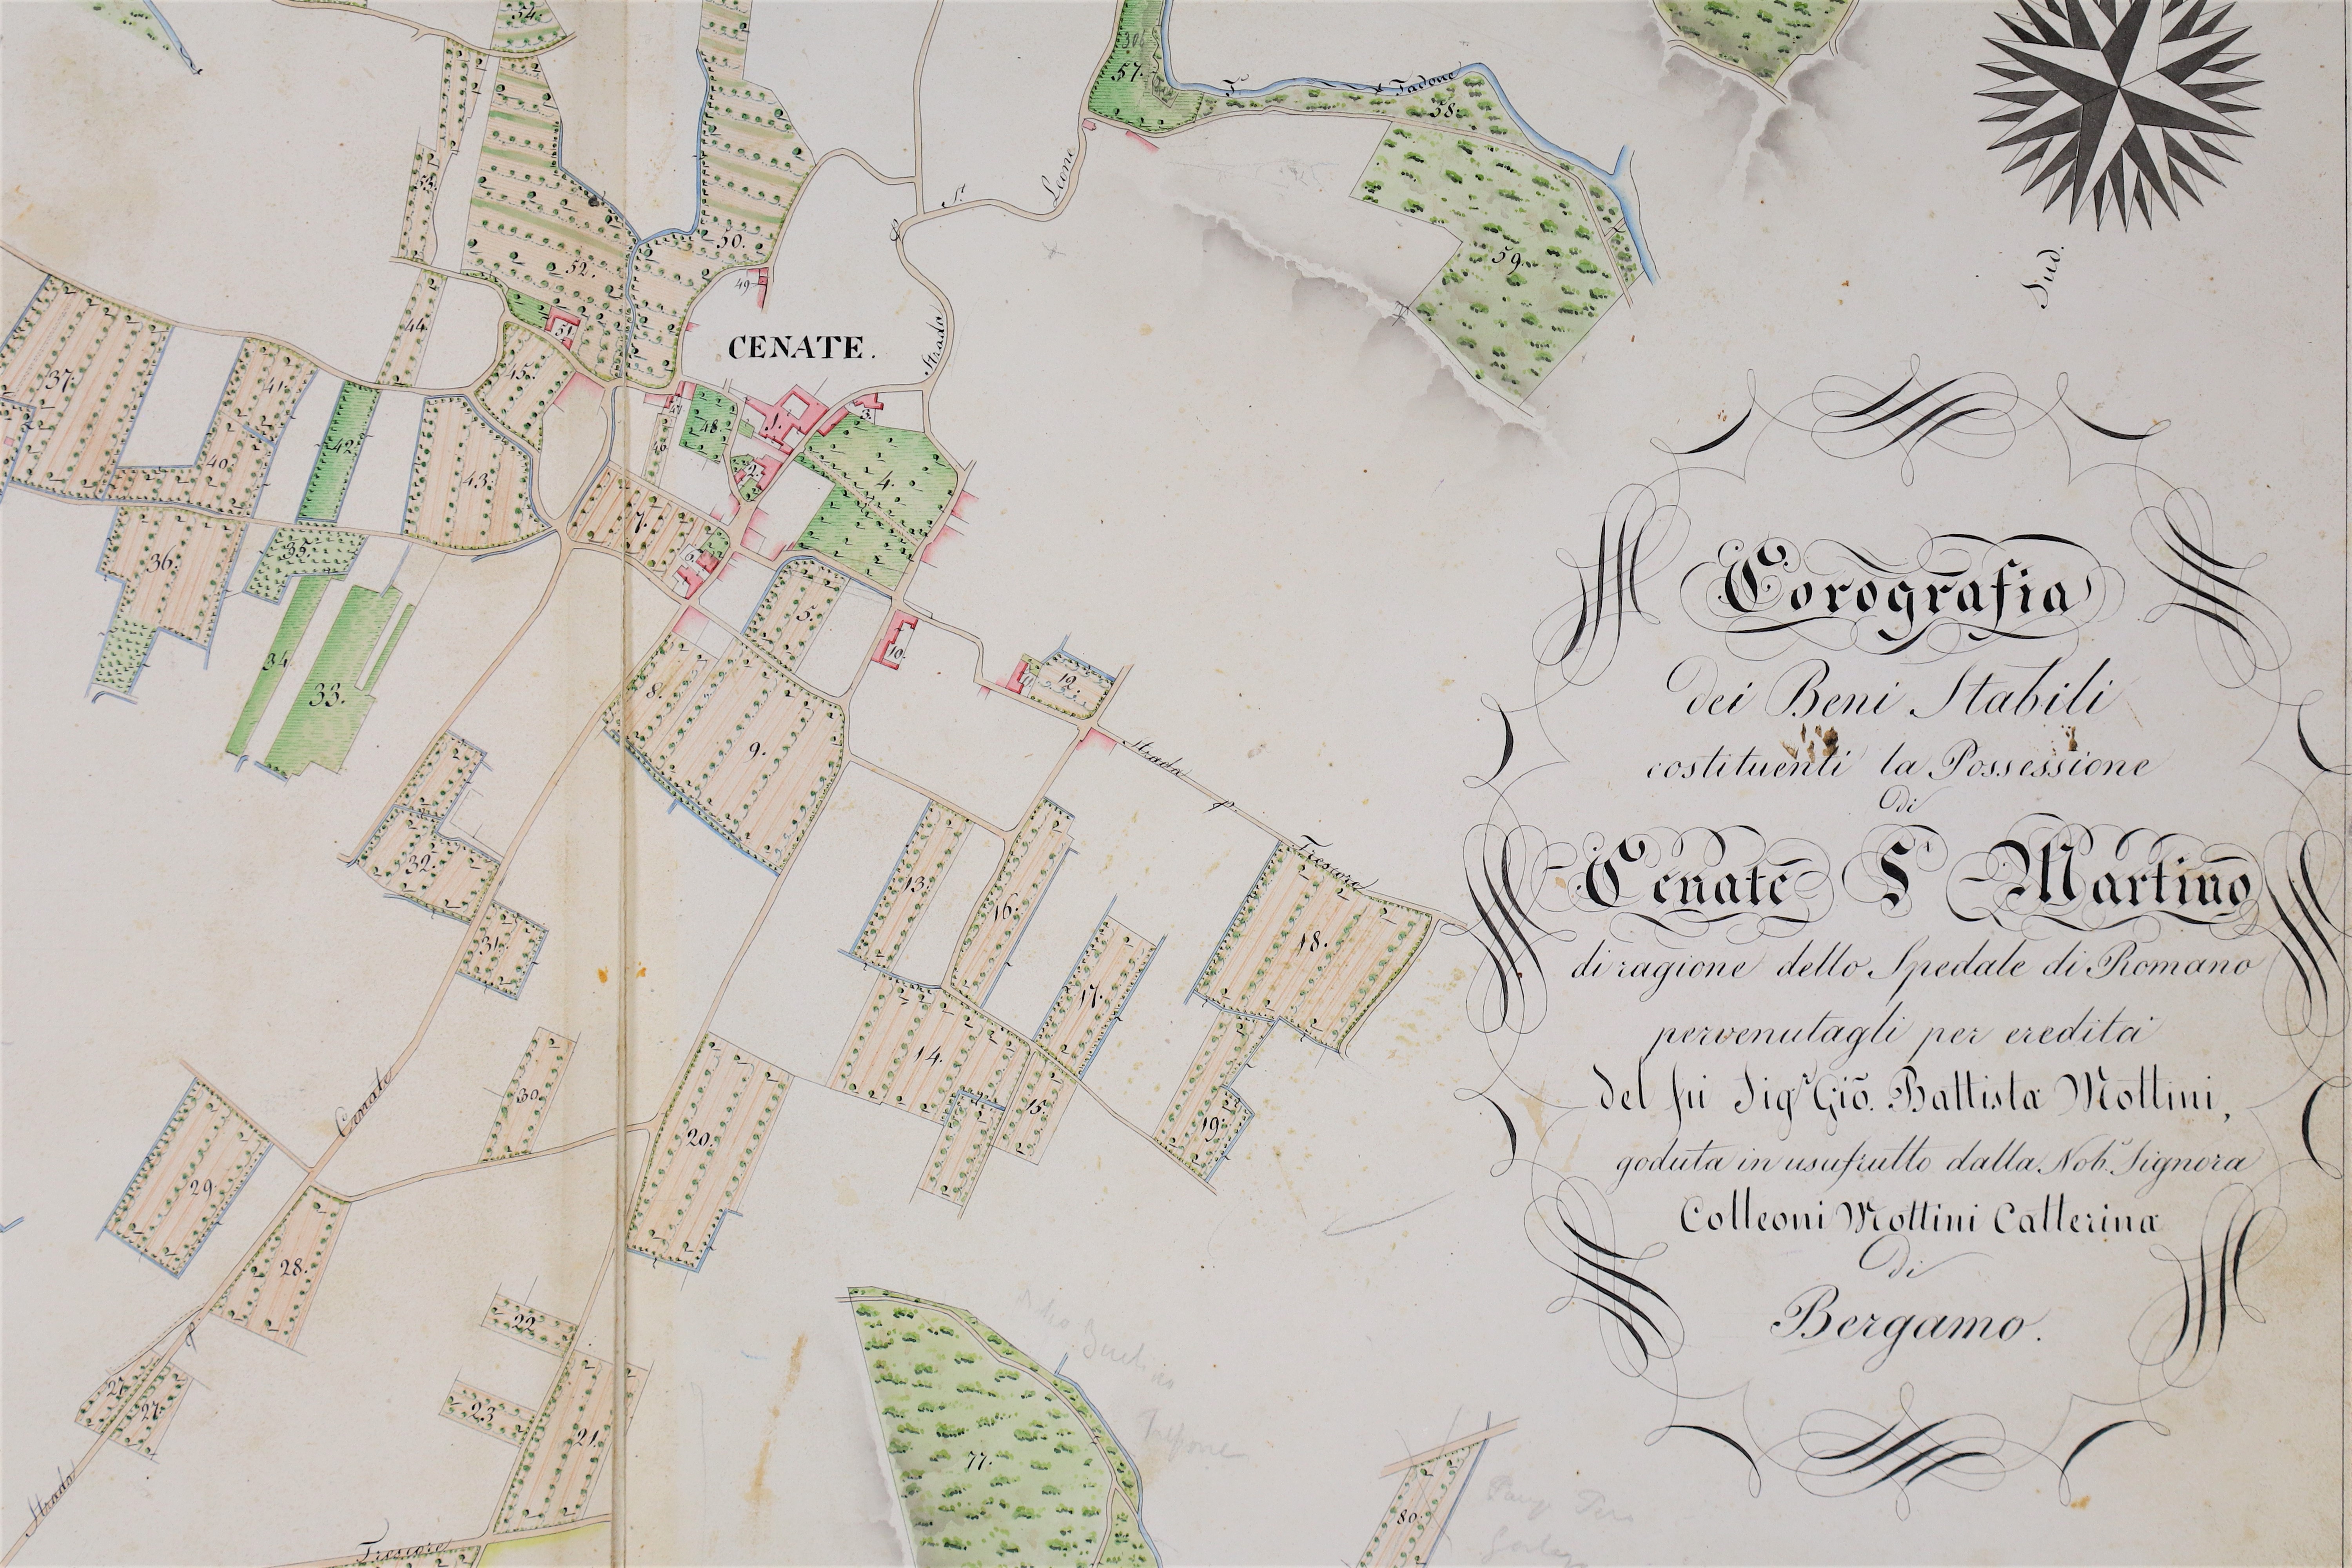 Corografia
dei Beni Stabili
costituenti la Possessione
di
Cenate S. Martino
di ragione dello Spedale di Romano
pervenutagli per eredità
del fù Sigr. Gio. Battista Mottini,
goduta in usufrutto dalla Nob. Signora
Colleoni Mottini Catterina
di
Bergamo.
Sud.
CENATE.
Strada
p.
S.
Leone
F.
Tadone
Strada
p.
Trescore
Strada
p.
Cenate
Trescore
54.
53.
52.
50.
49
51
57.
58.
59.
37.
41.
44.
45.
42.
40.
43.
47
48.
46
1.
2.
3.
4.
7.
6.
5.
36.
35.
34
33.
8.
9.
10.
12.
32.
31.
13.
16.
17.
18.
14.
15.
19.
30.
20.
29.
28.
27.
27.
22.
23.
21.
77.
80.